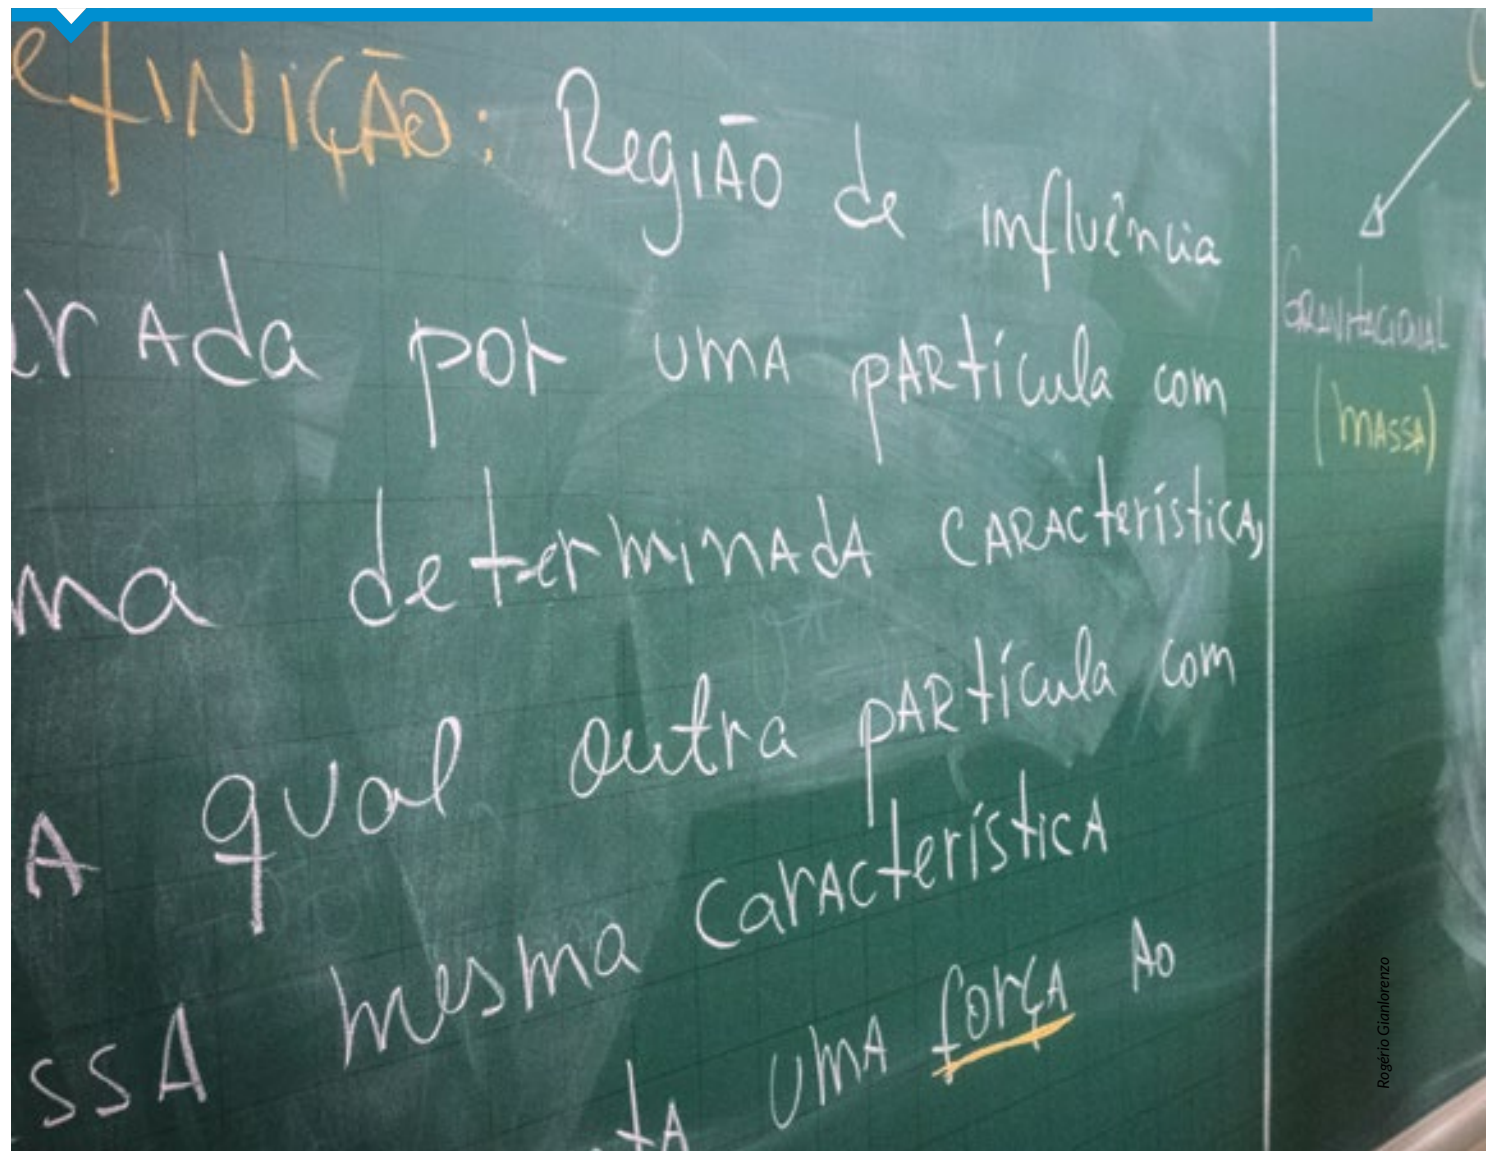 efINIÇÃO: Região de influência
rada por uma partícula com
ma determinada característica,
a qual outra partícula com
ssa mesma característica
ta uma força ao
Gravitacional
(massa)
Rogério Gianlorenzo